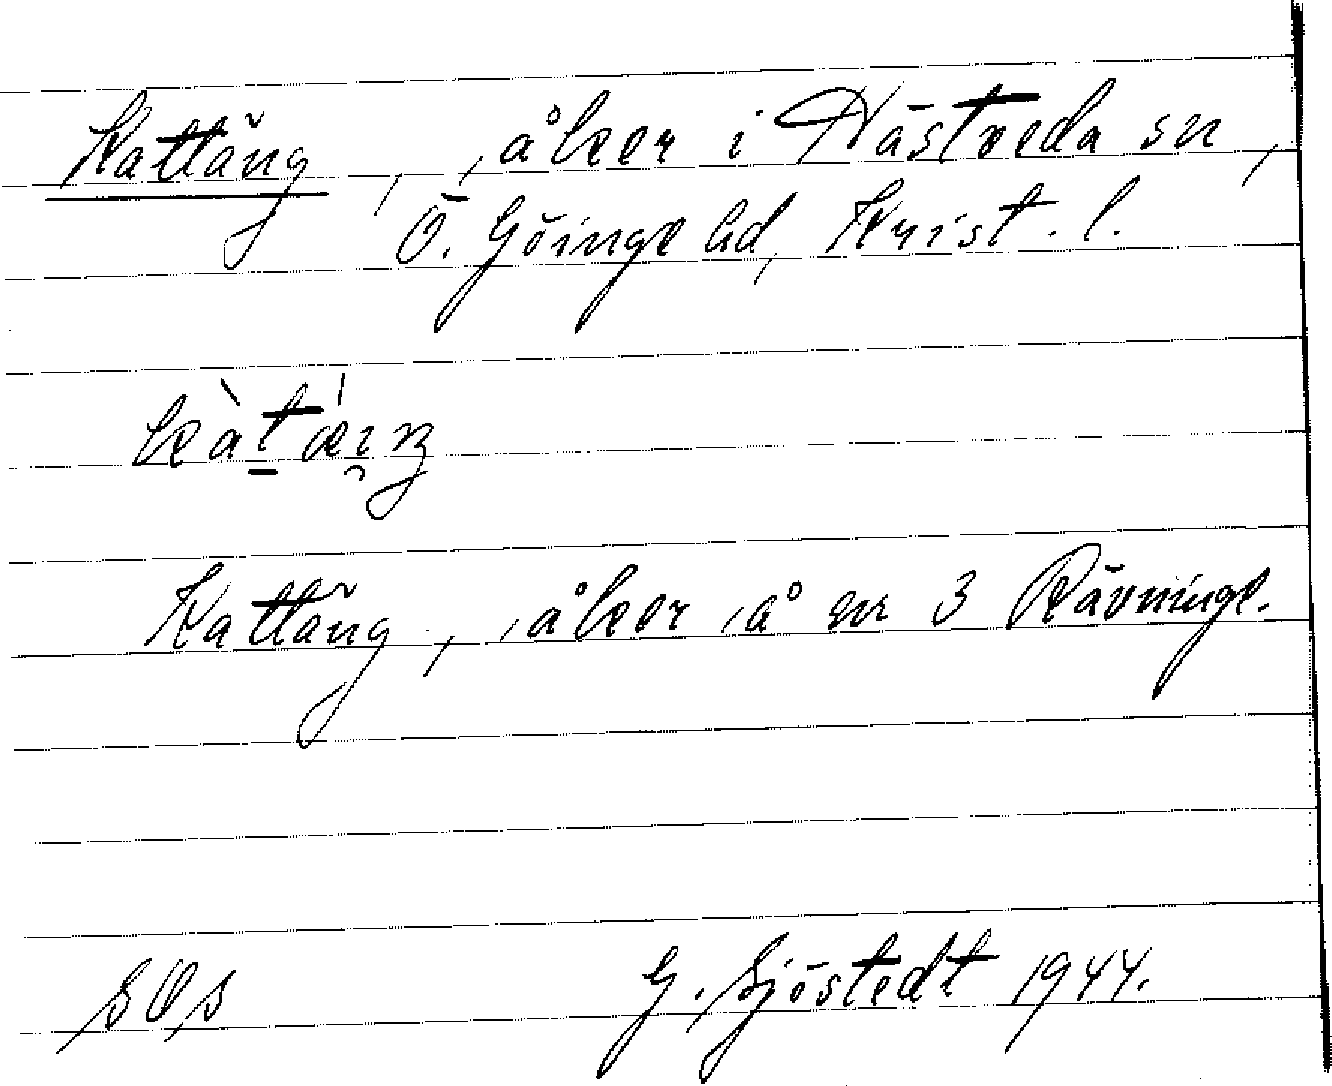 Kattäng, åker i Hästveda sn,
Ö. Göinge hd, Krist. l.
Kattäng, åker å nr 3 Rävninge.
G. Sjöstedt 1944.